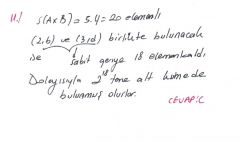 11) s(AxB) = 5.4 = 20 elemanlı
(2,b) ve (3,d) birlikte bulunacak
ise sabit geriye 18 eleman kaldı
Dolayısıyla 2^18 tane alt kümede
bulunmuş olurlar.
CEVAP: C